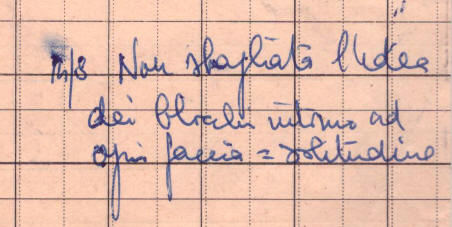 Non sbagliata l'idea
dei blocchi intorno ad
ogni faccia = solitudine